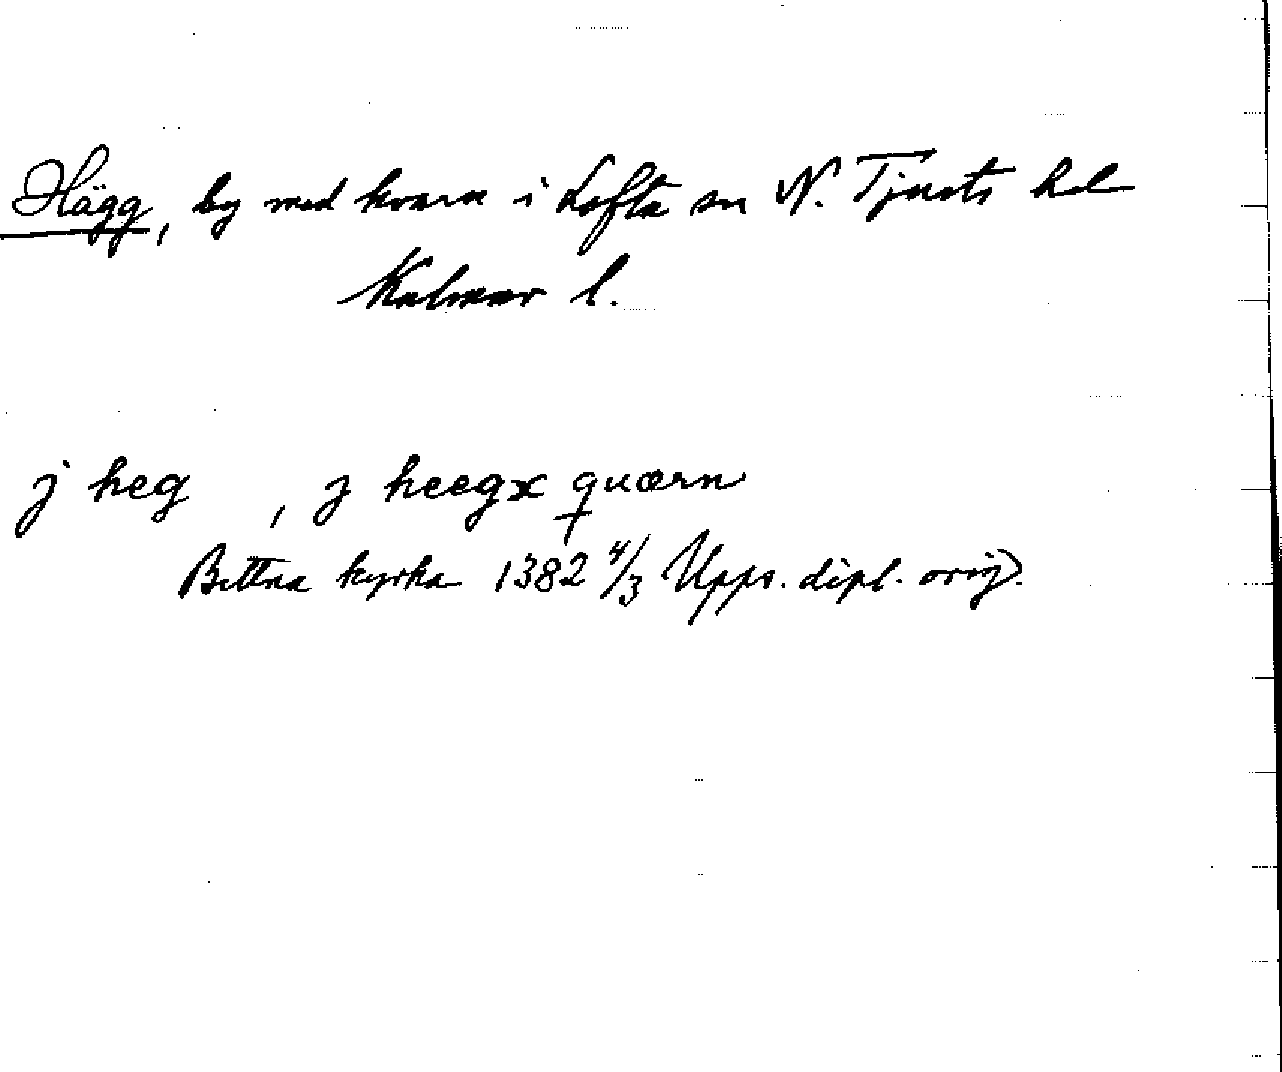 Hägg, by med kvarn i Lofta sn N. Tjusts hd
Kalmar l.
j heg , j heegx quærn
Bettna kyrka 1382 4/3 Upps. dipl. orig.